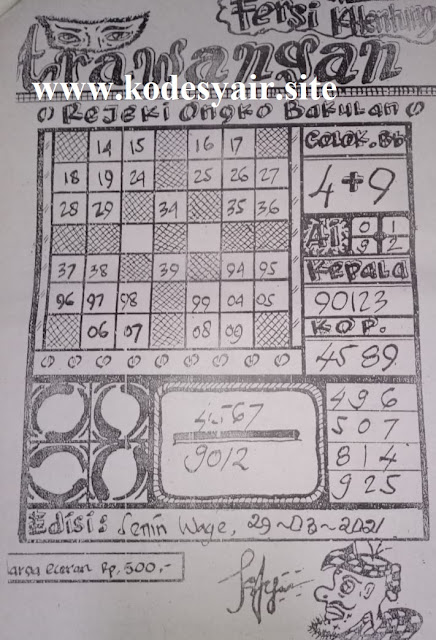 Fersi Khentung
trawangan
www.kodesyair.site
Rejeki Ongko Bakulan
14 15 16 17
18 19 24 25 26 27
28 29 34 35 36
37 38 39 94 95
96 97 98 99 04 05
06 07 08 09
Colok.Bb
4+9
Ai 0 1
9 2
Kepala
90123
KOP.
4589
4567
9012
496
507
814
925
Edisi: Senin Wage, 29-03-2021
arga eceran Rp, 500,-